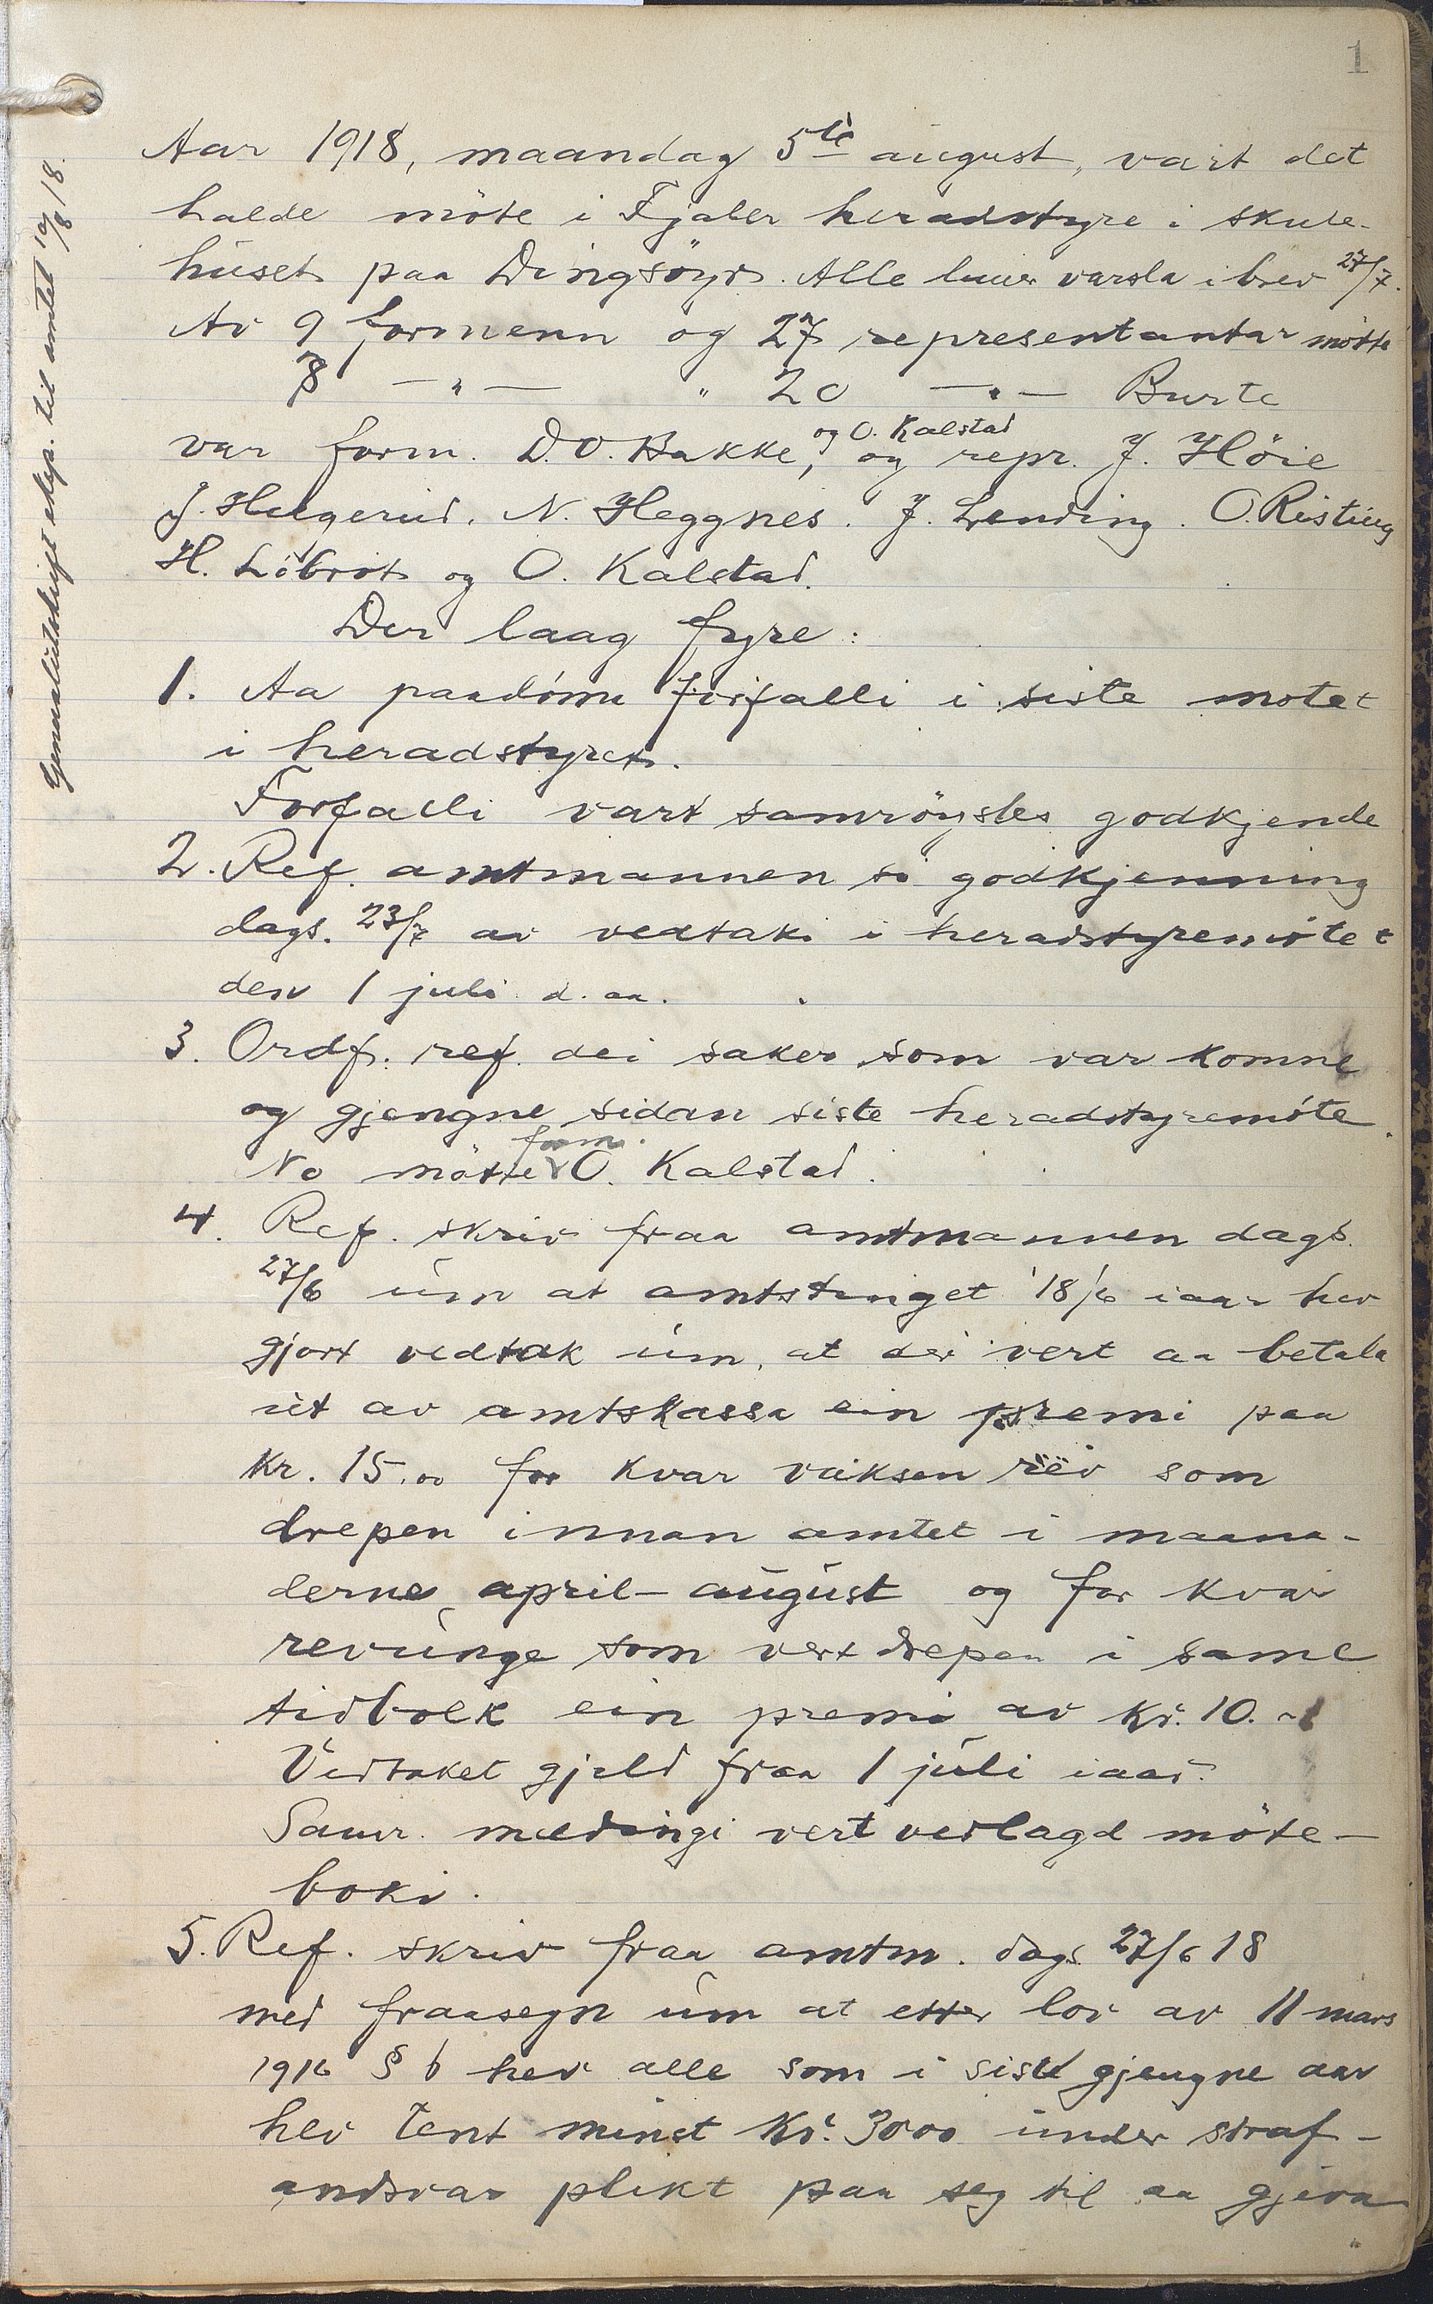 1
Aar 1918, maandag 5te august, vart det
halde möte i Fjaler heradstyre i skule-
huset paa Dingsöyr. Alle luer varsla i brev 27/7.
Av 9 formenn og 27 representantar mötte
8 — " — " 20 — " — Burte
og O. Kalstad
var form. D.O. Bakke, og repr. J. Höie
J. Helgerud. N. Heggnes. J. Lending. O. Risting
H. Löbrot og O. Kalstad.
Der laag fyre:
1. Aa paadöma forfalli i siste motet
i heradstyret.
Forfalli vart samröystes godkjende
2. Ref. amtmannen si godkjenning
dags. 23/7 av vedtak i heradstyremötet
den 1 juli d. aa.
3. Ordf. ref. dei saker som var komne
og gjengne sidan siste heradstyremöte.
form.
No mötte O. Kalstad.
4. Ref. skriv fraa amtmannen dags.
27/6 um at amtstinget 18/6 iaar hev
gjort vedtak um, at der vert aa betala
ut av amtskassa ein premi paa
Kr. 15.00 for kvar vaksen rev som
drepen innan amtet i maana-
derne april–august og for kvar
revunge som vert drepen i same
tidbolk ein premi av Kr. 10.-
Vedtaket gjeld fraa 1 juli iaar.
Samr. meldingi vert vedlagd möte-
boki.
5. Ref. skriv fraa amtm. dags 27/6 18
med fraasegn um at etter lov av 11 mars
1916 § 6 hev alle som i sist gjengne aar
hev tent minst Kr. 3000 under straf-
andsvar plikt paa seg til aa gjeva
Generalutskrift eksp. til amtet 10/8 18.